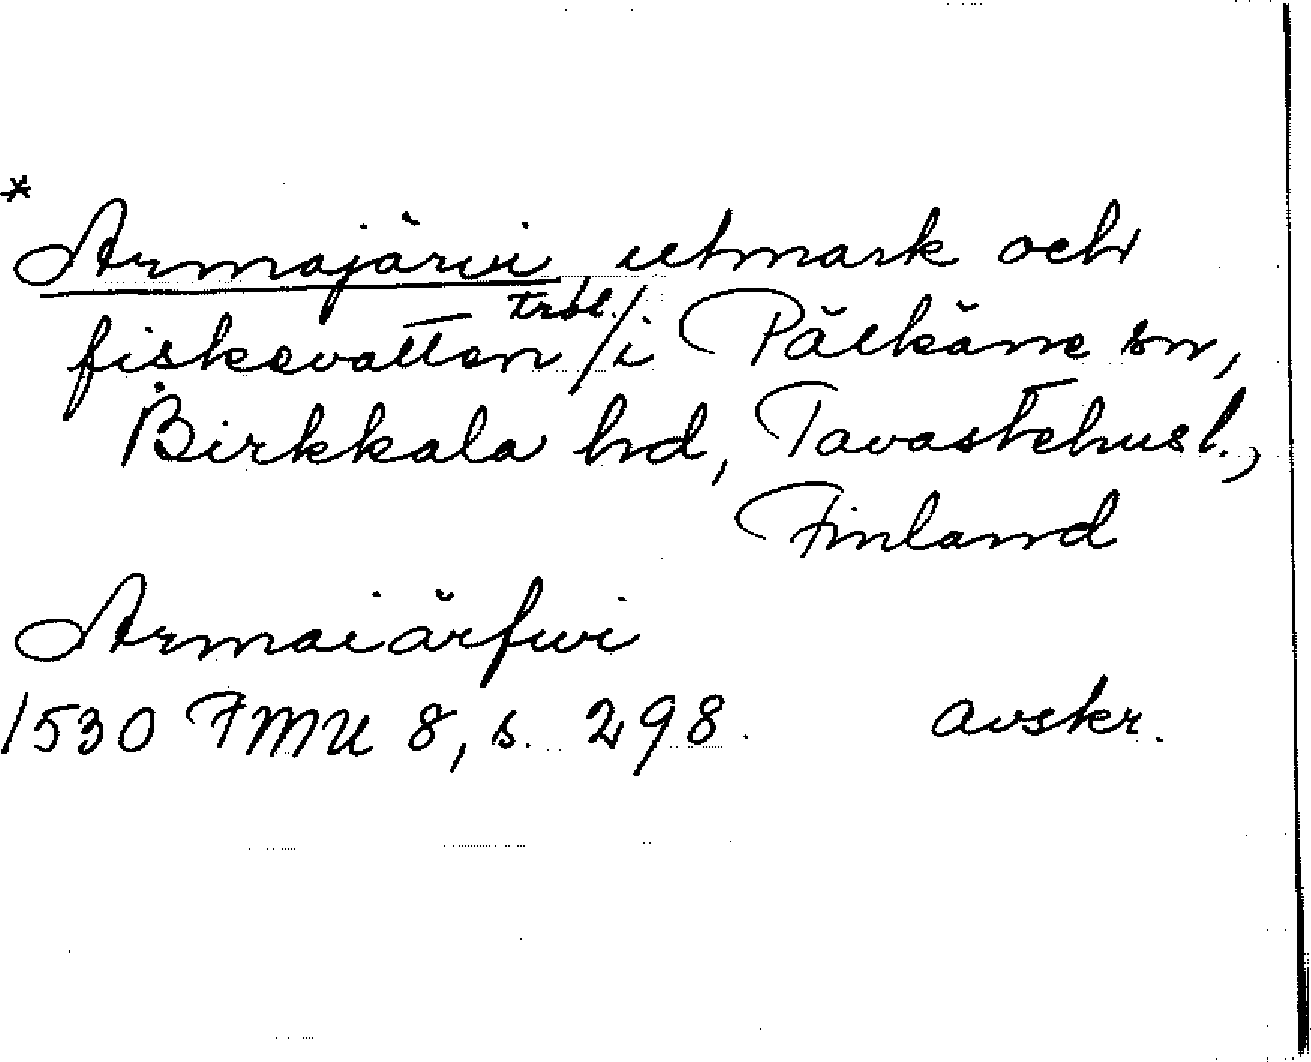 * Armajärvi, utmark och
fiskevatten trol. / i Pälkäne sn,
Birkkala hd, Tavastehusl.,
Finland
Armaiärfwi
1530 FMU 8, s. 298. avskr.